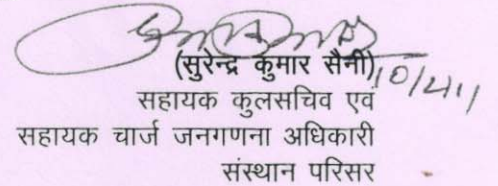 (सुरेन्द्र कुमार सैनी)
सहायक कुलसचिव एवं
सहायक चार्ज जनगणना अधिकारी
संस्थान परिसर